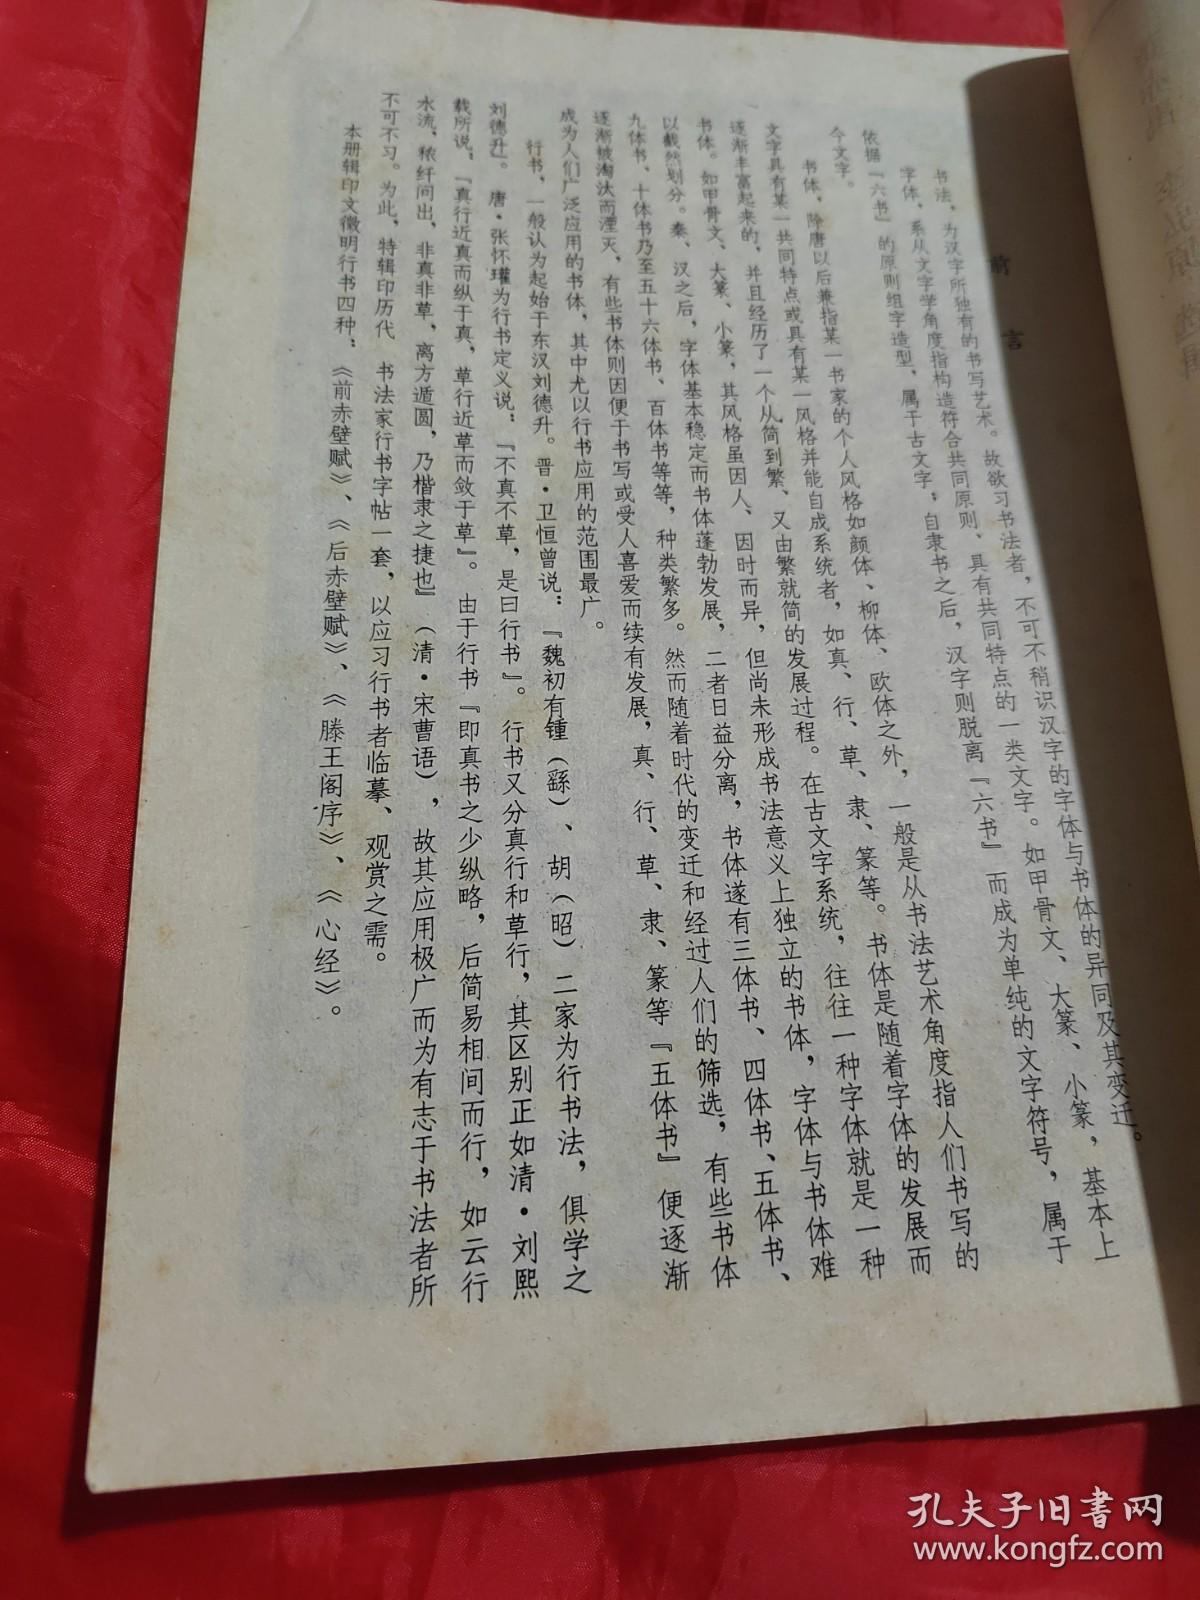 前言
书法，为汉字所独有的书写艺术。故欲习书法者，不可不稍识汉字的字体与书体的异同及其变迁。
字体，系从文字学角度指构造符合共同原则、具有共同特点的一类文字。如甲骨文、大篆、小篆，基本上
依据『六书』的原则组字造型，属于古文字；自隶书之后，汉字则脱离『六书』而成为单纯的文字符号，属于
今文字。
书体，除唐以后兼指某一书家的个人风格如颜体、柳体、欧体之外，一般是从书法艺术角度指人们书写的
文字具有某一共同特点或具有某一风格并能自成系统者，如真、行、草、隶、篆等。书体是随着字体的发展而
逐渐丰富起来的，并且经历了一个从简到繁、又由繁就简的发展过程。在古文字系统，往往一种字体就是一种
书体。如甲骨文、大篆、小篆，其风格虽因人、因时而异，但尚未形成书法意义上独立的书体，字体与书体难
以截然划分。秦、汉之后，字体基本稳定而书体蓬勃发展，二者日益分离，书体遂有三体书、四体书、五体书、
九体书、十体书乃至五十六体书、百体书等等，种类繁多。然而随着时代的变迁和经过人们的筛选，有些书体
逐渐被淘汰而湮灭，有些书体则因便于书写或受人喜爱而续有发展，真、行、草、隶、篆等『五体书』便逐渐
成为人们广泛应用的书体，其中尤以行书应用的范围最广。
行书，一般认为起始于东汉刘德升。晋·卫恒曾说：『魏初有锺（繇）、胡（昭）二家为行书法，俱学之
刘德升』。唐·张怀瓘为行书定义说：『不真不草，是曰行书』。行书又分真行和草行，其区别正如清·刘熙
载所说：『真行近真而纵于真，草行近草而敛于草』。由于行书『即真书之少纵略，后简易相间而行，如云行
水流，秾纤间出，非真非草，离方遁圆，乃楷隶之捷也』（清·宋曹语），故其应用极广而为有志于书法者所
不可不习。为此，特辑印历代 书法家行书字帖一套，以应习行书者临摹、观赏之需。
本册辑印文徵明行书四种：《前赤壁赋》、《后赤壁赋》、《滕王阁序》、《心经》。
孔夫子旧书网
www.kongfz.com